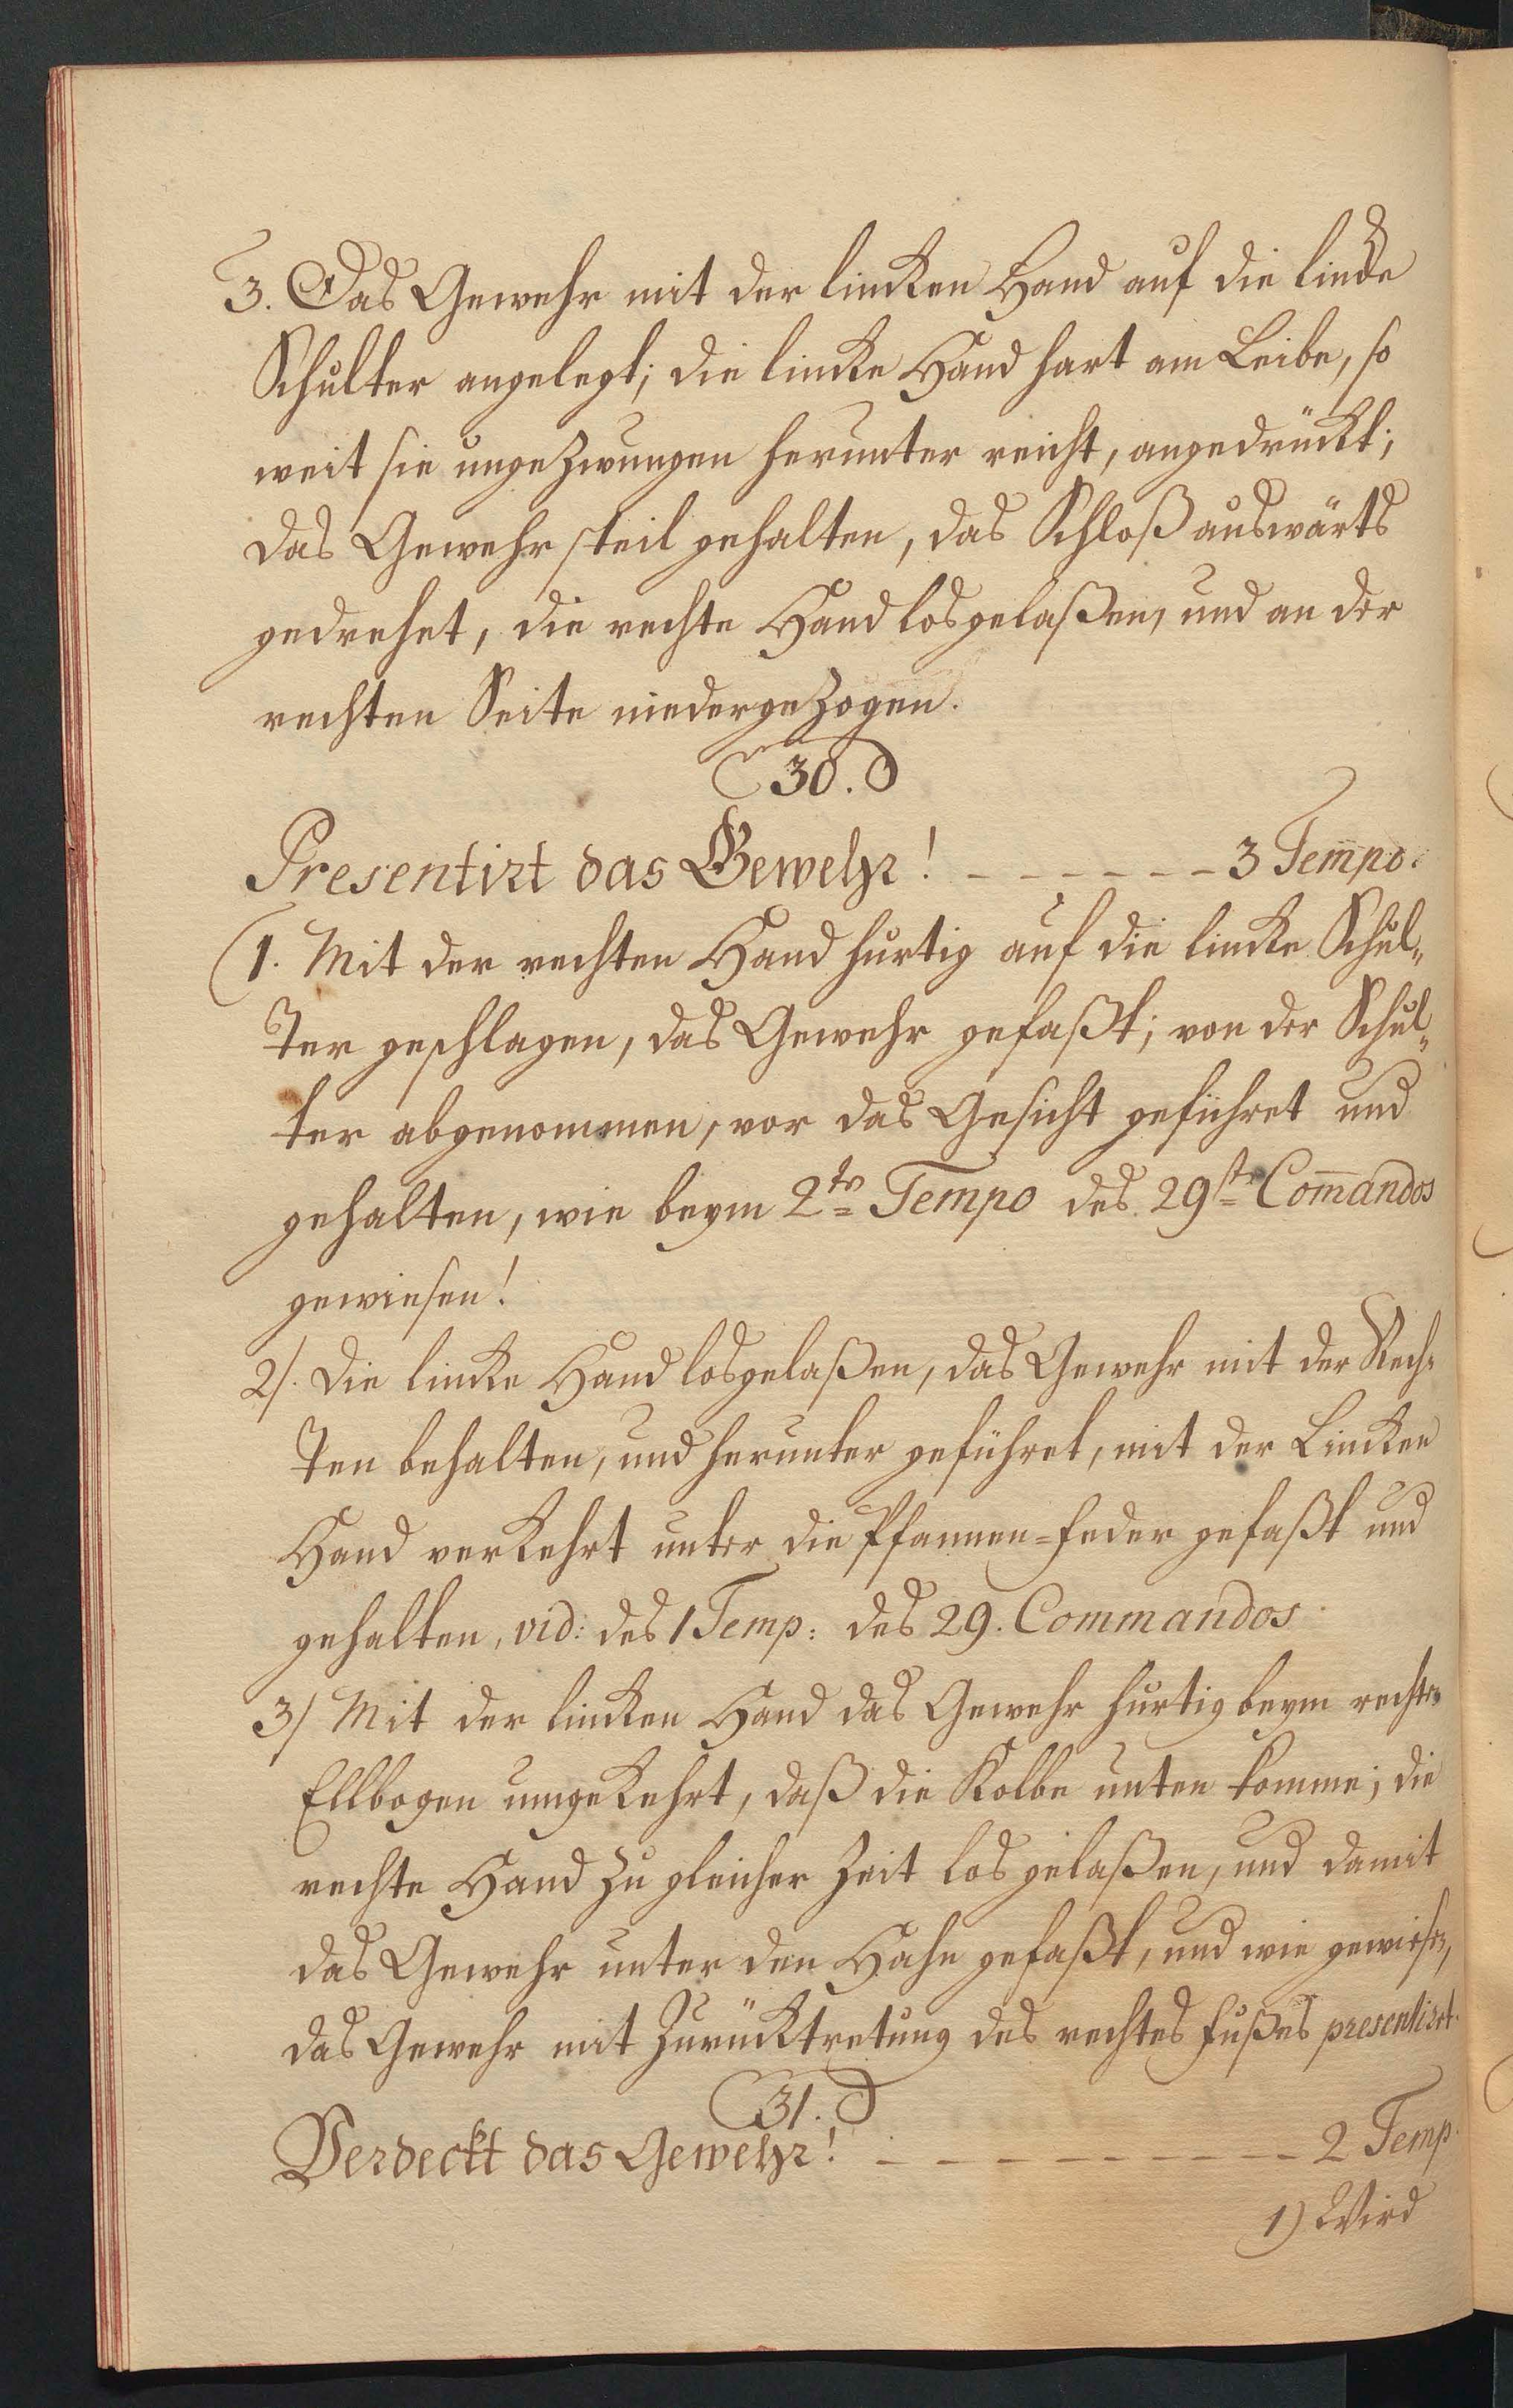 3. Das Gewehr mit der lincken Hand auf die lincke
Schulter angelegt; die lincke Hand hart am Leibe, so
weit sie ungezwungen herunter reicht, angedrückt;
das Gewehr steil gehalten, das Schloß auswärts
gedrehet, die rechte Hand losgelaßen, und an der
rechten Seite niedergezogen.
30.
Presentirt das Gewehr! - - - - - - - 3 Tempo.
1. Mit der rechten Hand hurtig auf die lincke Schul„
ter geschlagen, das Gewehr gefaßt; von der Schul„
ter abgenommen, vor das Gesicht geführet und
gehalten, wie beym 2tn Tempo des 29stn Com̅andos
gewiesen!
2/. Die lincke Hand losgelaßen, das Gewehr mit der Rech„
ten behalten, und herunter geführet, mit der Lincken
Hand verkehrt unter die Pfannen=Feder gefaßt und
gehalten, vid: des 1 Temp: des 29. Commandos.
3/ Mit der lincken Hand das Gewehr hurtig beym rechten
Ellbogen umgekehrt, daß die Kolbe unten komme; die
rechte Hand zu gleicher Zeit losgelaßen, und damit
das Gewehr unter den Hahn gefaßt, und wie gewiesen,
das Gewehr mit Zurücktretung des rechtes Fußes presentiret.
31.
Verdeckt das Gewehr! - - - - - - - - - - 2 Temp.
1) Wird